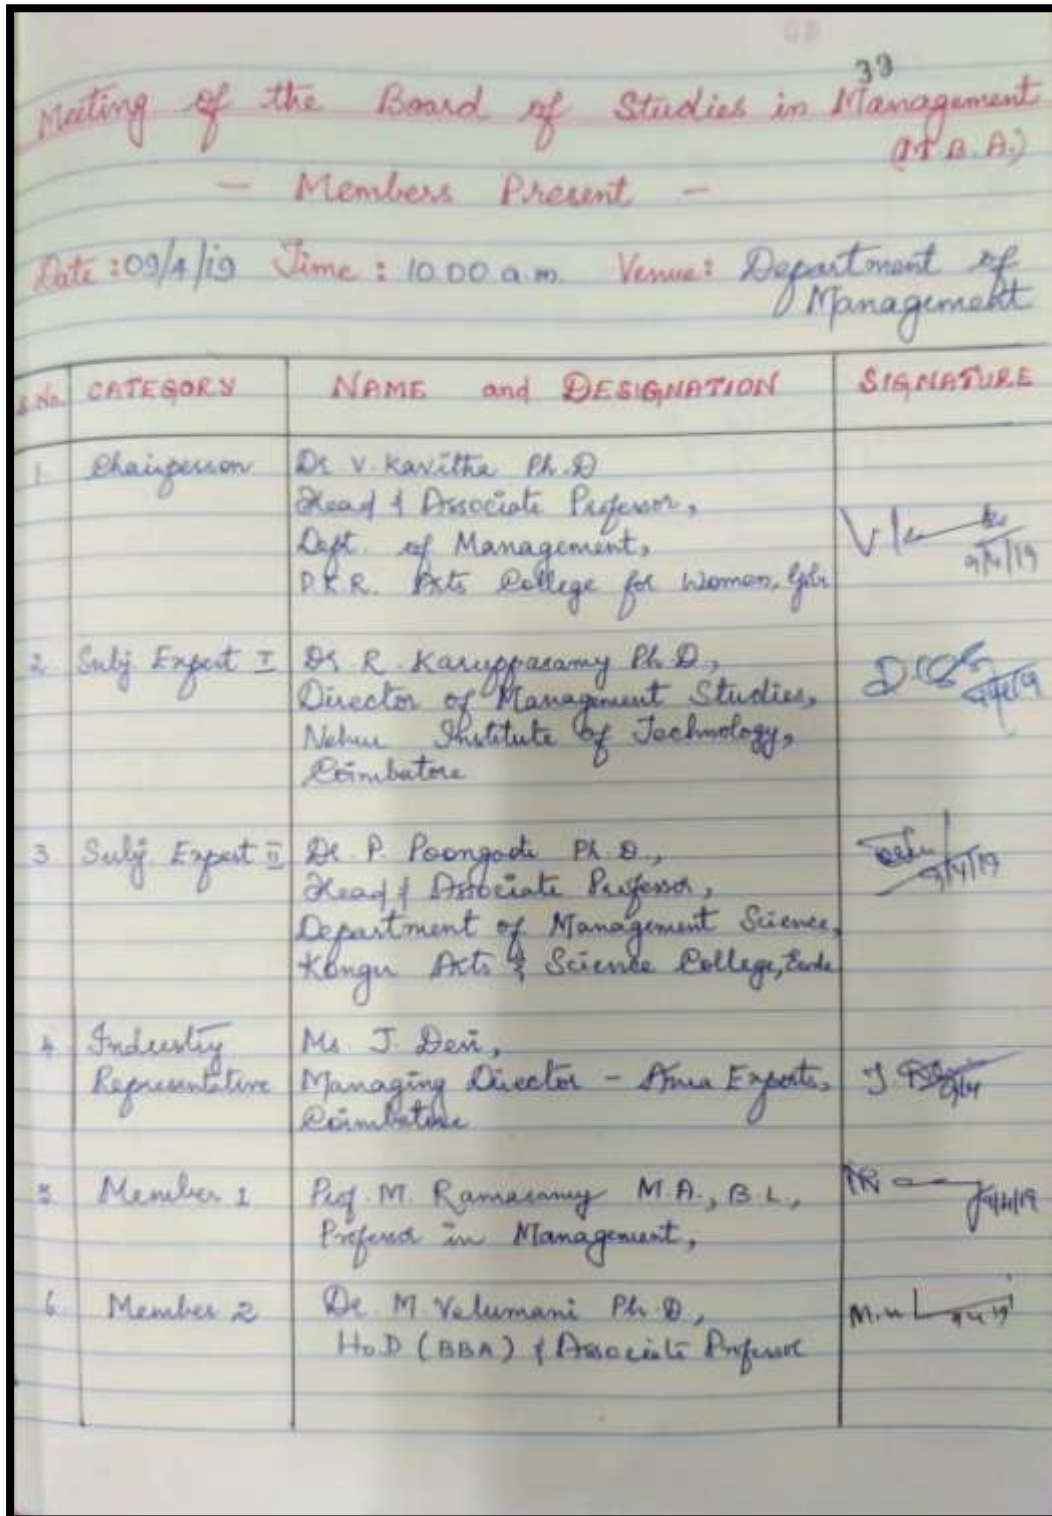 39
Meeting of the Board of Studies in Management
(M.B.A.)
- Members Present -
Date : 09/4/19 Time : 10.00 a.m. Venue : Department of
Management
S.No. CATEGORY NAME and DESIGNATION SIGNATURE
1. Chairperson Dr V. Kavitha Ph.D
Head & Associate Professor,
Dept. of Management,
P.K.R. Arts College for Women, Gobi
9/4/19
2 Subj. Expert I Dr R. Karuppasamy Ph.D.,
Director of Management Studies,
Nehru Institute of Technology,
Coimbatore
3 Subj. Expert II Dr. P. Poongodi Ph.D.,
Head & Associate Professor,
Department of Management Science,
Kongu Arts & Science College, Erode
9/4/19
4 Industry Ms. J. Devi,
Representative Managing Director - Exports,
Coimbatore
5. Member 1 Prof. M. Ramasamy M.A., B.L.,
Professor in Management,
9/4/19
6. Member 2 Dr. M. Velumani Ph.D.,
HoD (BBA) & Associate Professor